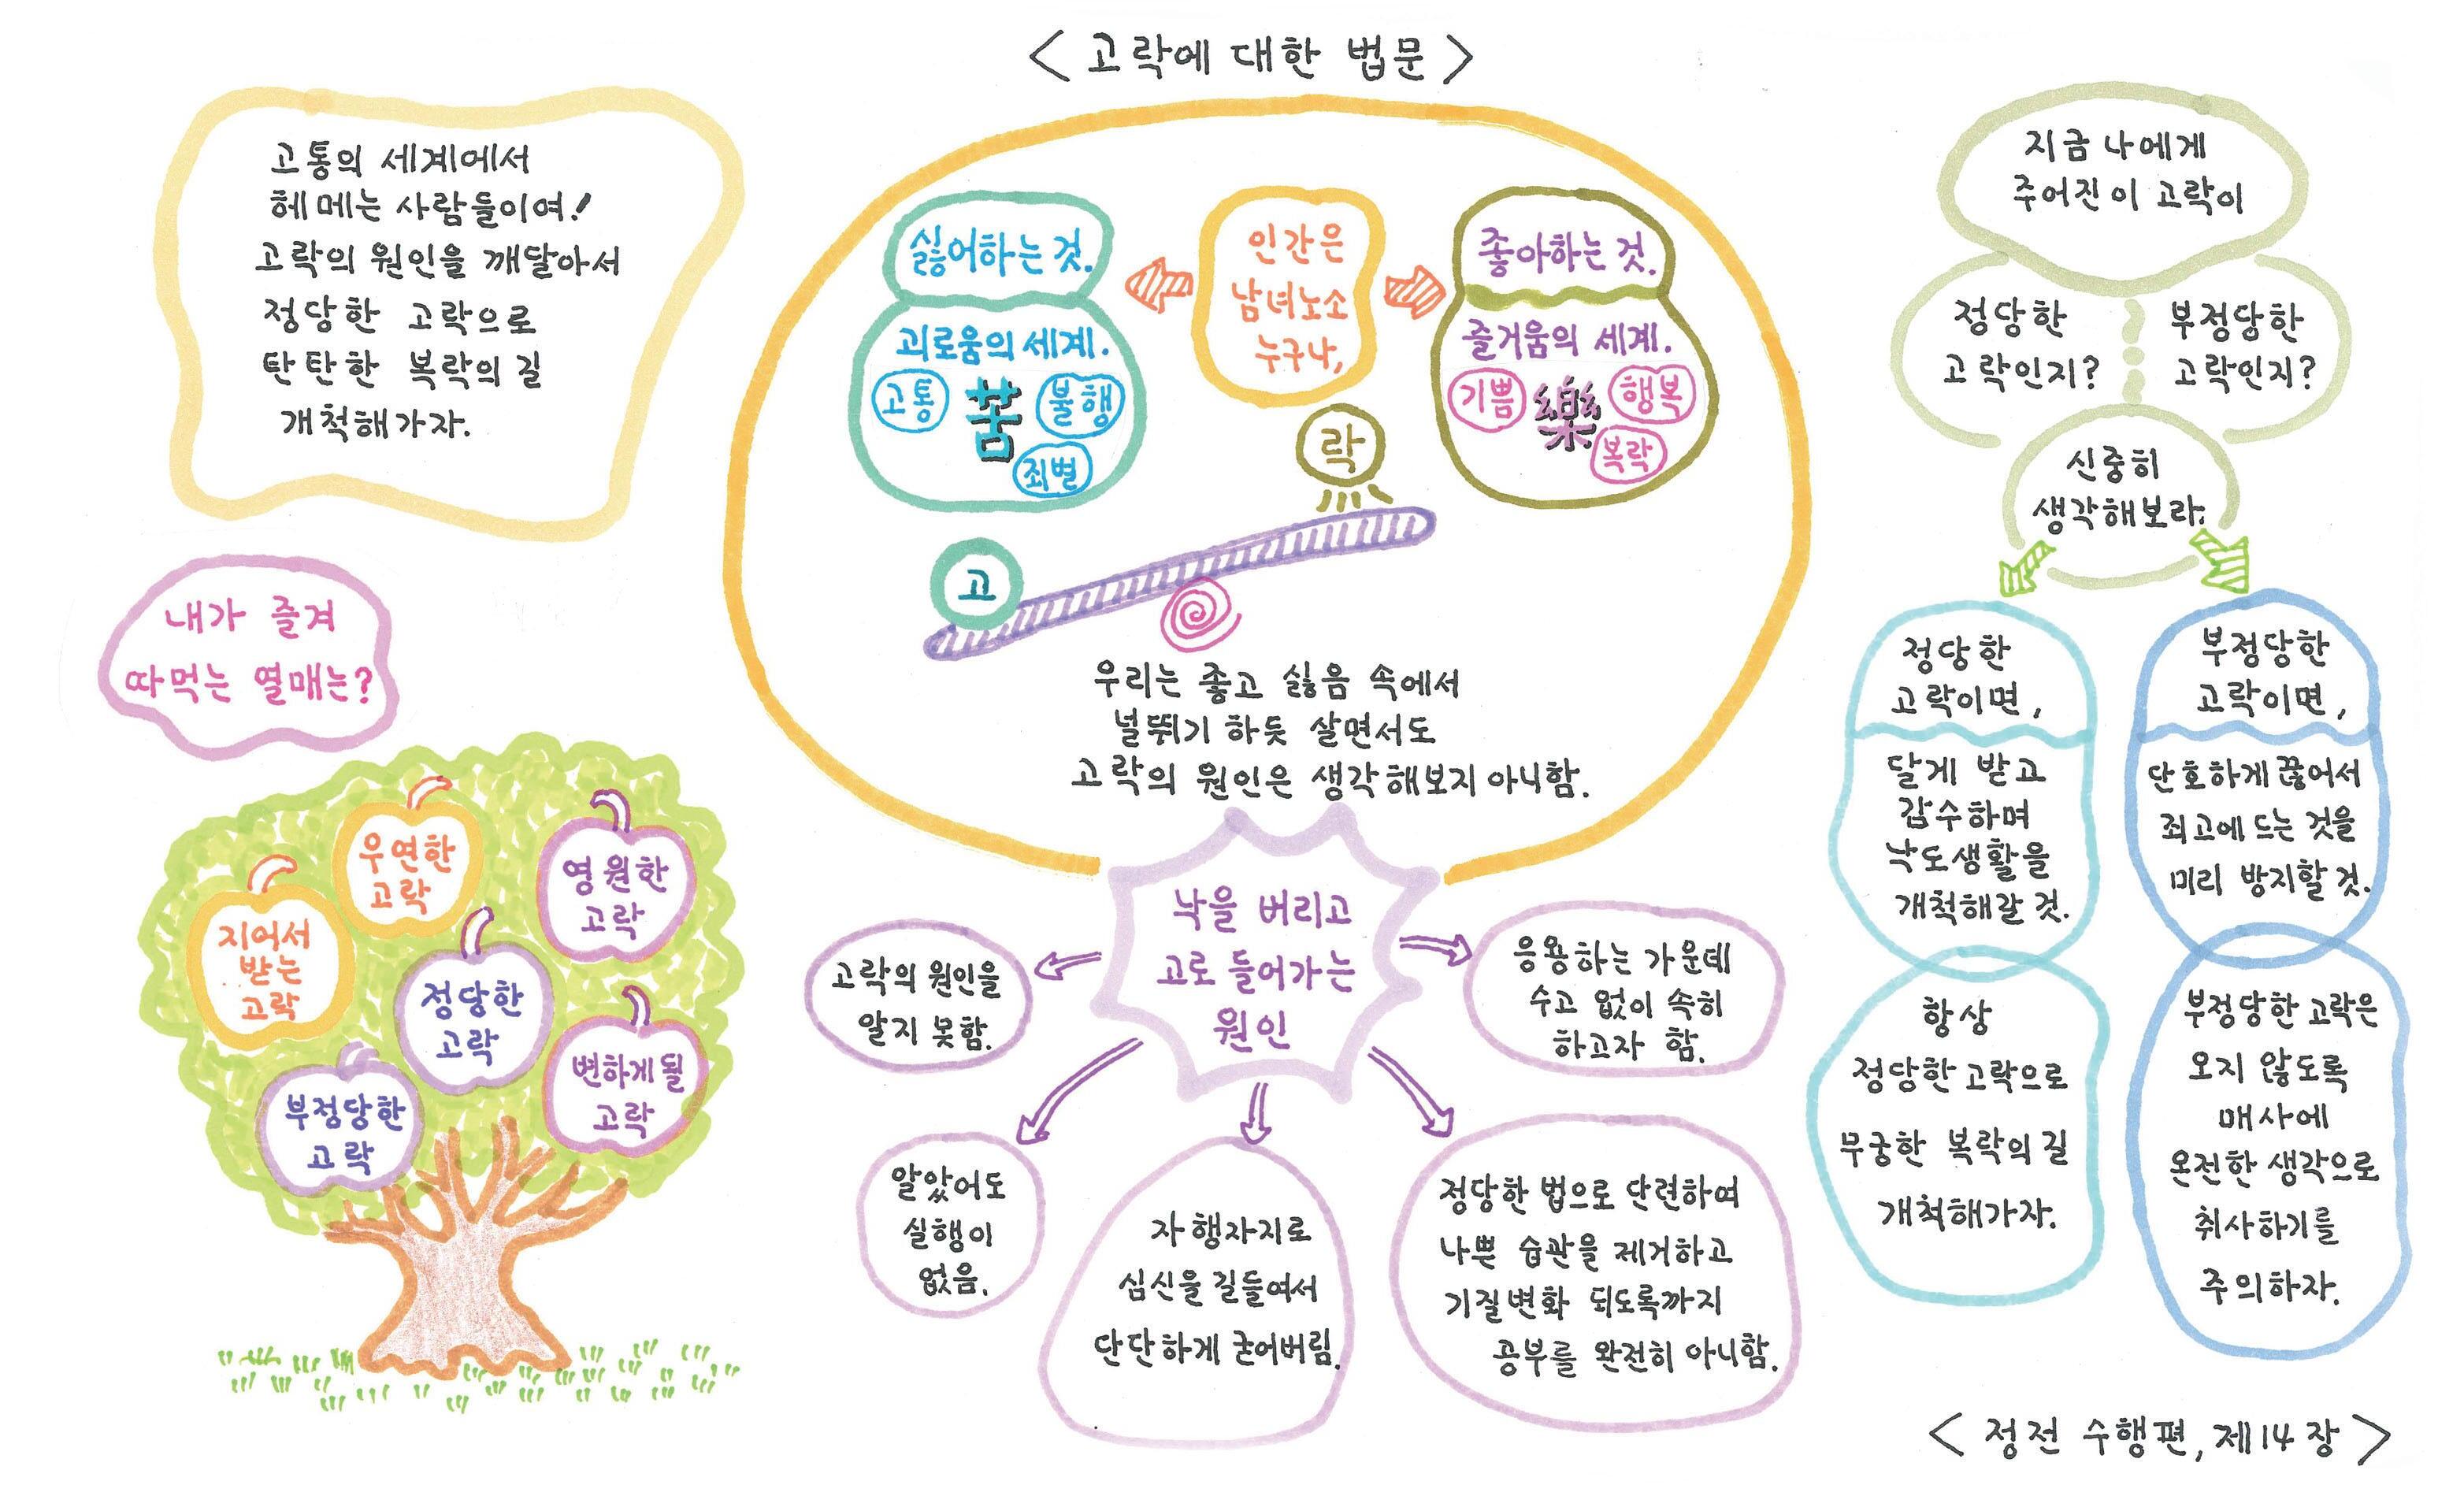 <고락에 대한 법문>
고통의 세계에서
헤메는 사람들이여!
고락의 원인을 깨달아서
정당한 고락으로
탄탄한 복락의 길
개척해가자.
내가 즐겨
따먹는 열매는?
우연한
고락
영원한
고락
지어서
받는
고락
정당한
고락
변하게 될
고락
부정당한
고락
싫어하는 것.
괴로움의 세계.
고통
苦
불행
죄벌
인간은
남녀노소
누구나,
좋아하는 것.
즐거움의 세계.
기쁨
樂
행복
복락
락
고
우리는 좋고 싫음 속에서
널뛰기 하듯 살면서도
고락의 원인은 생각해보지 아니함.
낙을 버리고
고로 들어가는
원인
고락의 원인을
알지 못함.
알았어도
실행이
없음.
자행자지로
심신을 길들여서
단단하게 굳어버림.
정당한 법으로 단련하여
나쁜 습관을 제거하고
기질변화 되도록까지
공부를 완전히 아니함.
응용하는 가운데
수고 없이 속히
하고자 함.
지금 나에게
주어진 이 고락이
정당한
고락인지?
부정당한
고락인지?
신중히
생각해보라.
정당한
고락이면,
달게 받고
감수하며
낙도생활을
개척해갈 것.
항상
정당한 고락으로
무궁한 복락의 길
개척해가자.
부정당한
고락이면,
단호하게 끊어서
죄고에 드는 것을
미리 방지할 것.
부정당한 고락은
오지 않도록
매사에
온전한 생각으로
취사하기를
주의하자.
<정전 수행편, 제14장>